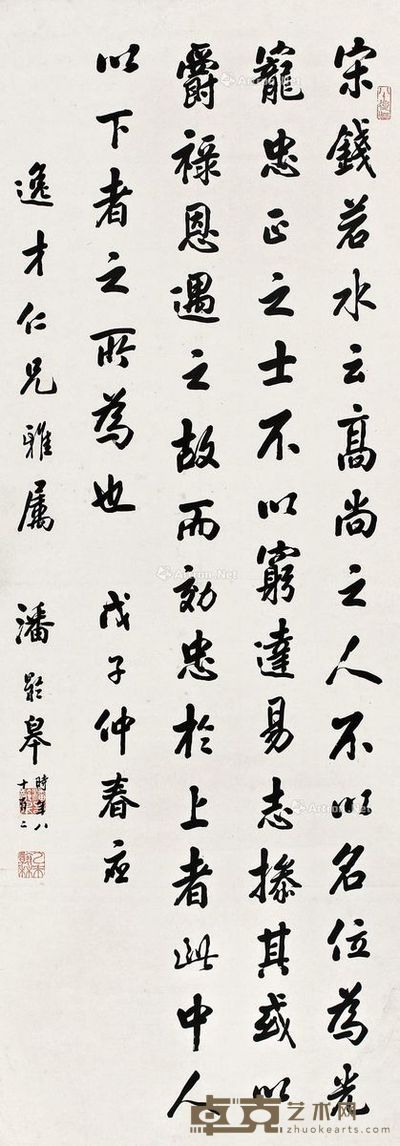 宋錢若水云高尚之人不以名位為光
寵忠正之士不以窮達易志操其或以
爵祿恩遇之故而効忠於上者此中人
以下者之所為也　戊子仲春應
逸才仁兄雅屬　潘齡皋時年八十有二
卓克艺术网
www.zhuokearts.com
Artron.Net